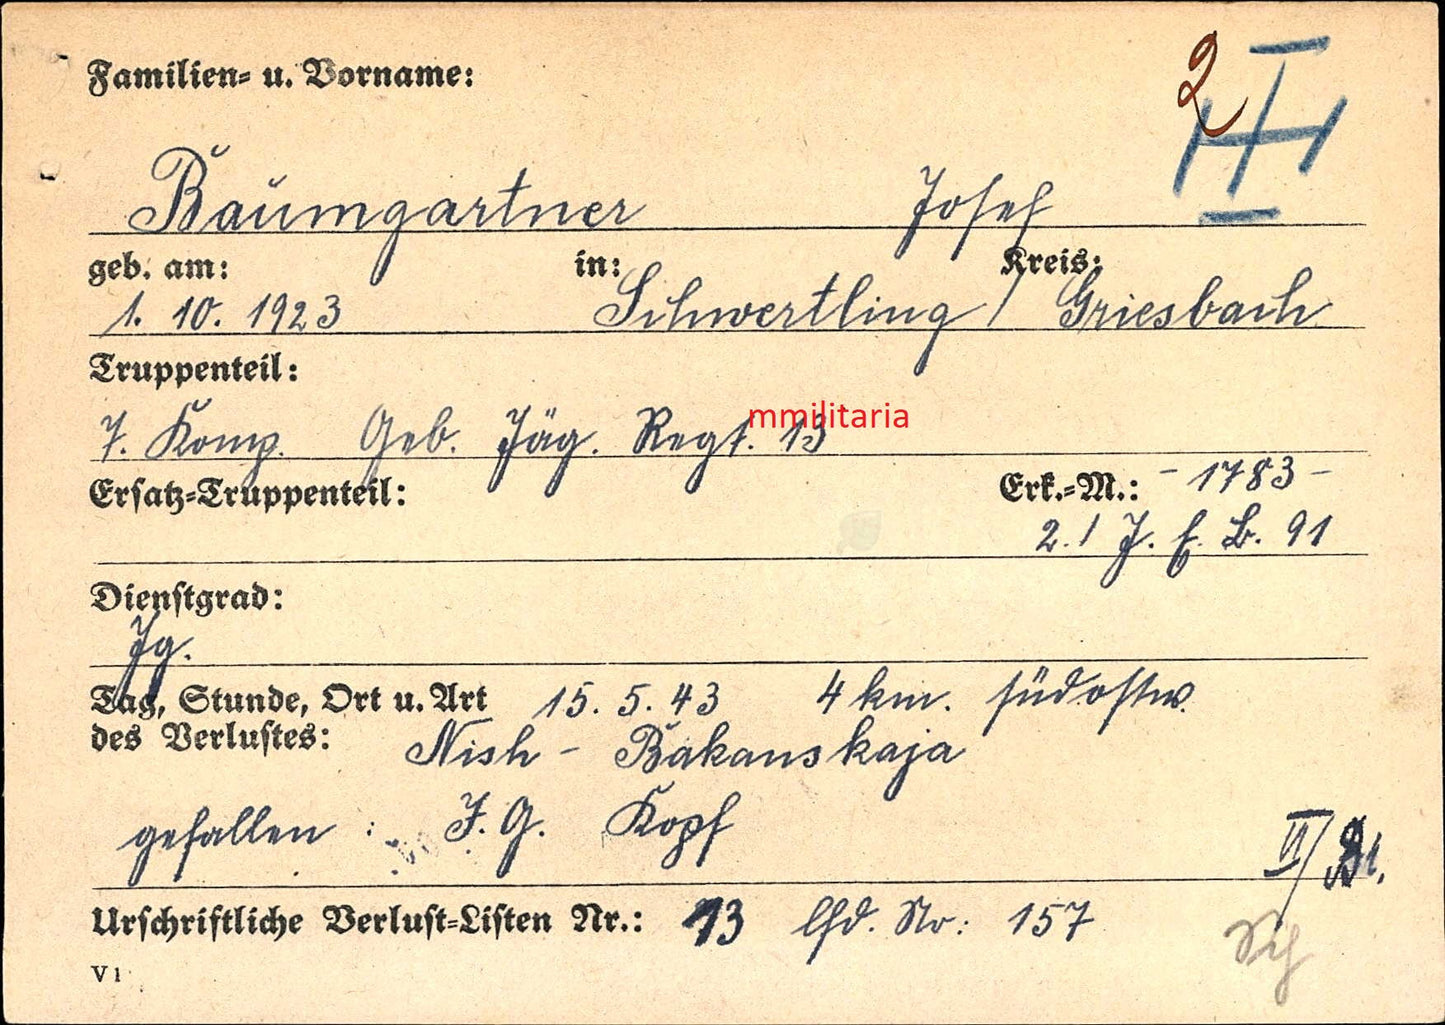 Familien- u. Vorname:
2 III
Baumgartner Josef
geb. am: in: Kreis:
1. 10. 1923 Schwertling / Griesbach
Truppenteil:
7. Komp. Geb. Jäg. Regt. 13
mmilitaria
Ersatz-Truppenteil: Erk.-M.: - 1783 -
2. / J. E. B. 91
Dienstgrad:
Jg.
Tag, Stunde, Ort u. Art 15. 5. 43 4 km. südostw.
des Verlustes: Nish - Bakanskaja
gefallen : I. G. Kopf
VI/
Urschriftliche Verlust-Listen Nr.: 13 lfd. Nr: 157
V 1